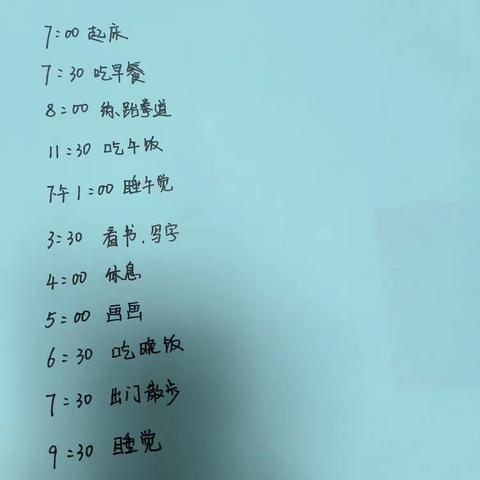 7:00 起床
7:30 吃早餐
8:00 练跆拳道
11:30 吃午饭
下午1:00 睡午觉
3:30 看书、写字
4:00 休息
5:00 画画
6:30 吃晚饭
7:30 出门散步
9:30 睡觉